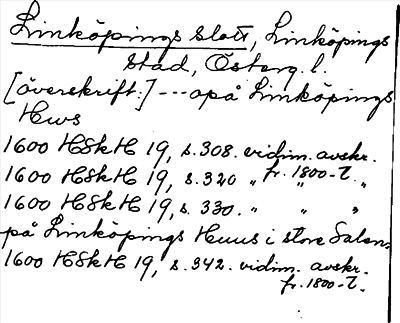 Linköpings slott, Linköpings
stad, Österg. l.
[överskrift:] --- opå Linköpings
Hws
1600 HSkH 19, s. 308. vidim. avskr.
fr. 1800-t.
1600 HSkH 19, s. 320 " " "
1600 HSkH 19, s. 330. " " "
på Linköpings Huus i store Salen.
1600 HSkH 19, s. 342. vidim. avskr.
fr. 1800-t.